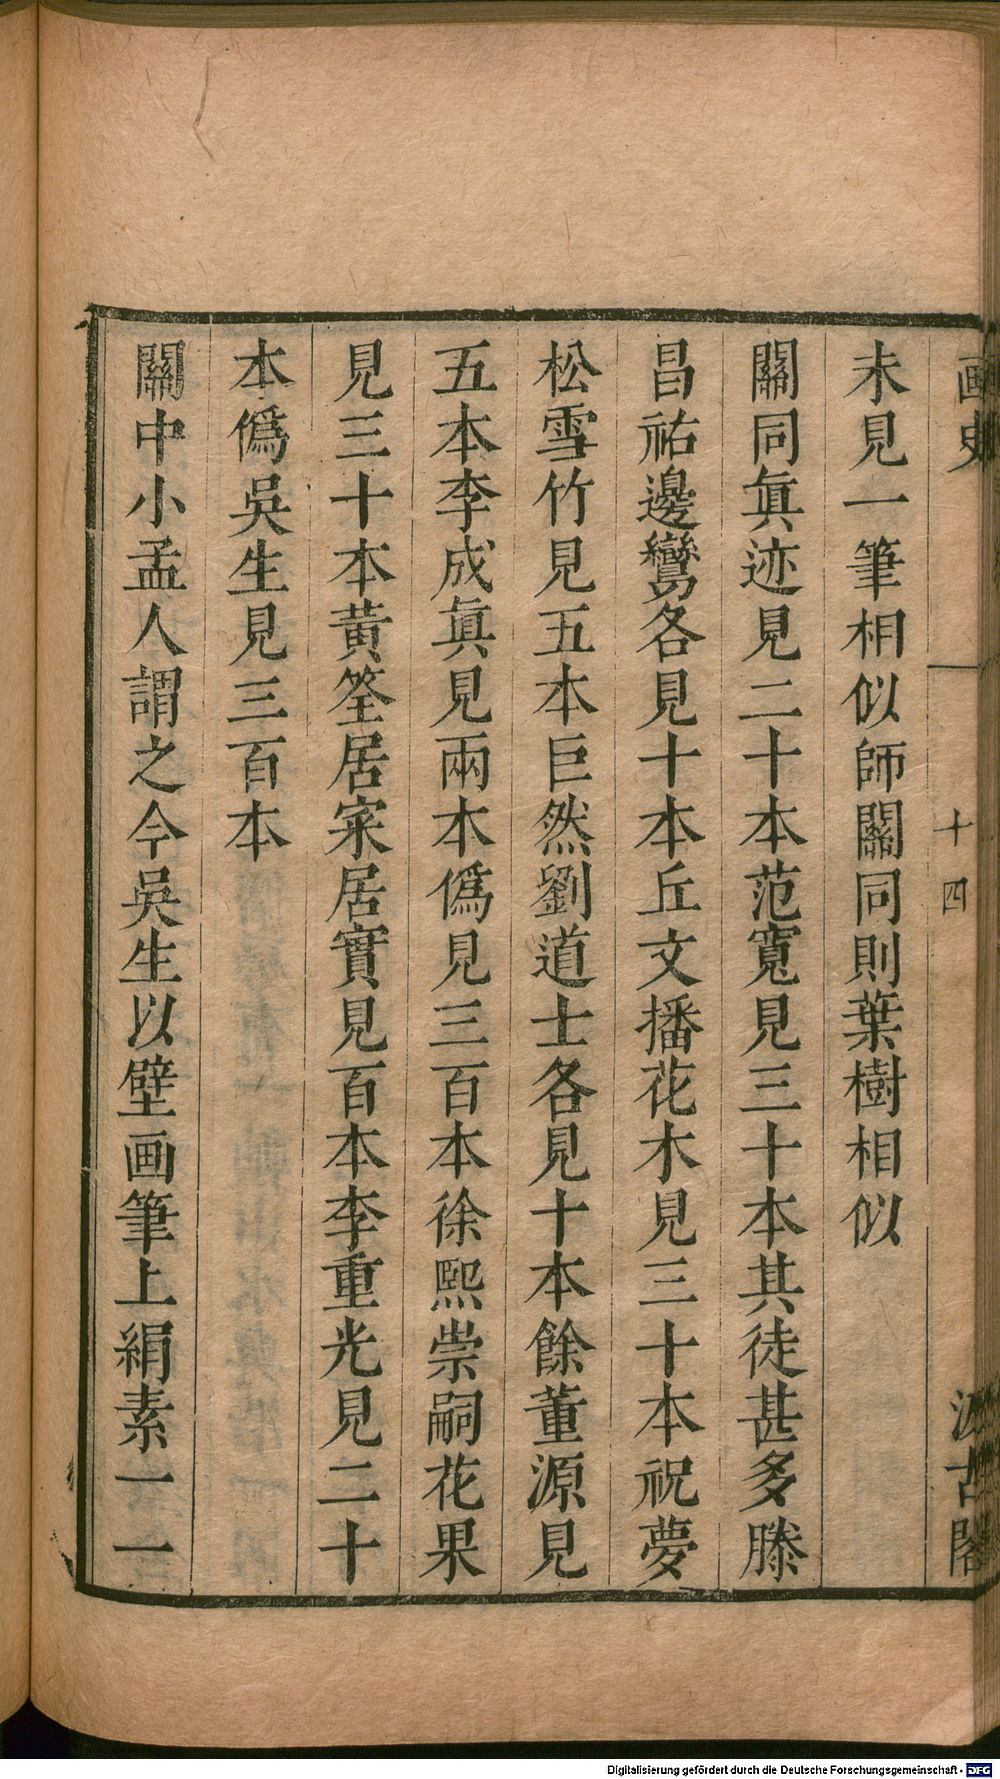 画史
十四
汲古閣
未見一筆相似師關同則葉樹相似
關同眞迹見二十本范寬見三十本其徒甚多滕
昌祐邊鸞各見十本丘文播花木見三十本祝夢
松雪竹見五本巨然劉道士各見十本餘董源見
五本李成眞見兩本僞見三百本徐熙崇嗣花果
見三十本黃筌居寀居實見百本李重光見二十
本僞吳生見三百本
關中小孟人謂之今吳生以壁画筆上絹素一一
Digitalisierung gefördert durch die Deutsche Forschungsgemeinschaft - DFG